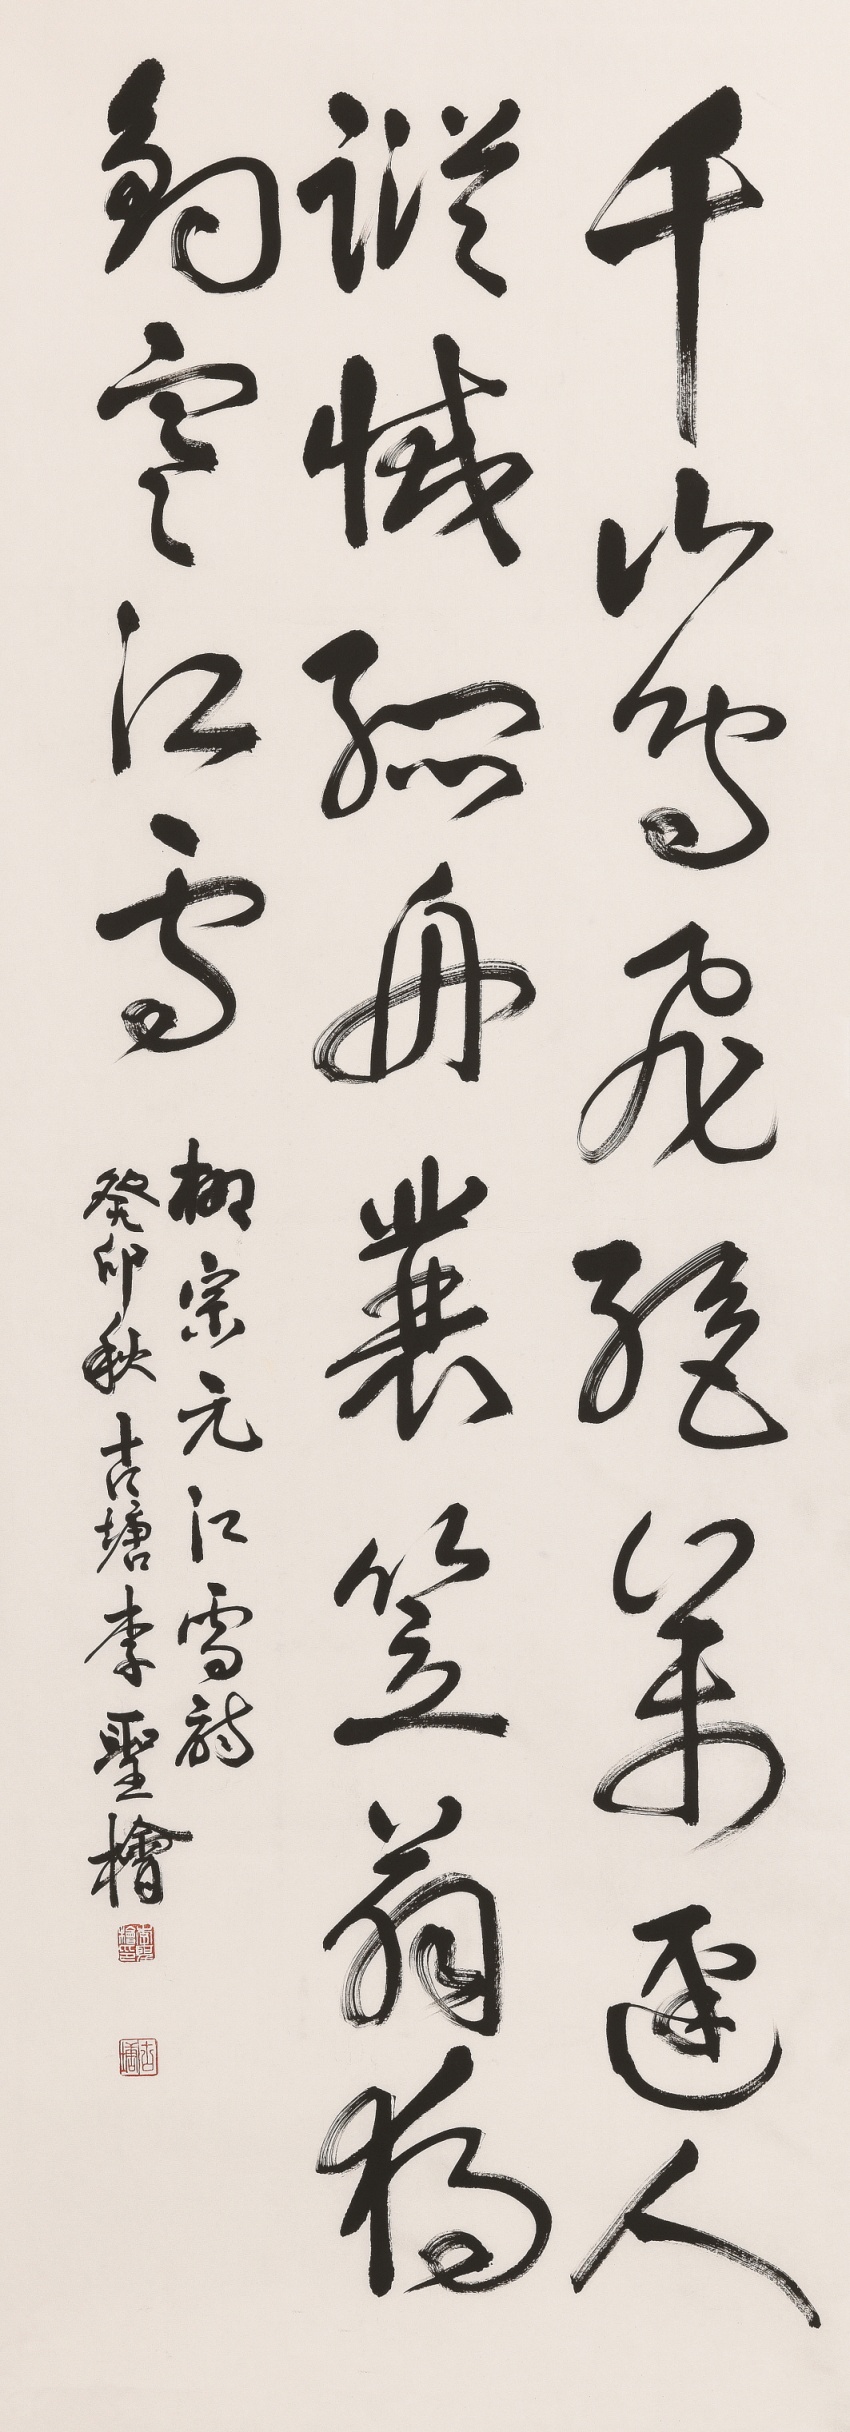 千山鳥飛絶萬逕人
蹤滅孤舟蓑笠翁獨
釣寒江雪
柳宗元江雪詩
癸卯秋古塘李聖檜
李聖檜印